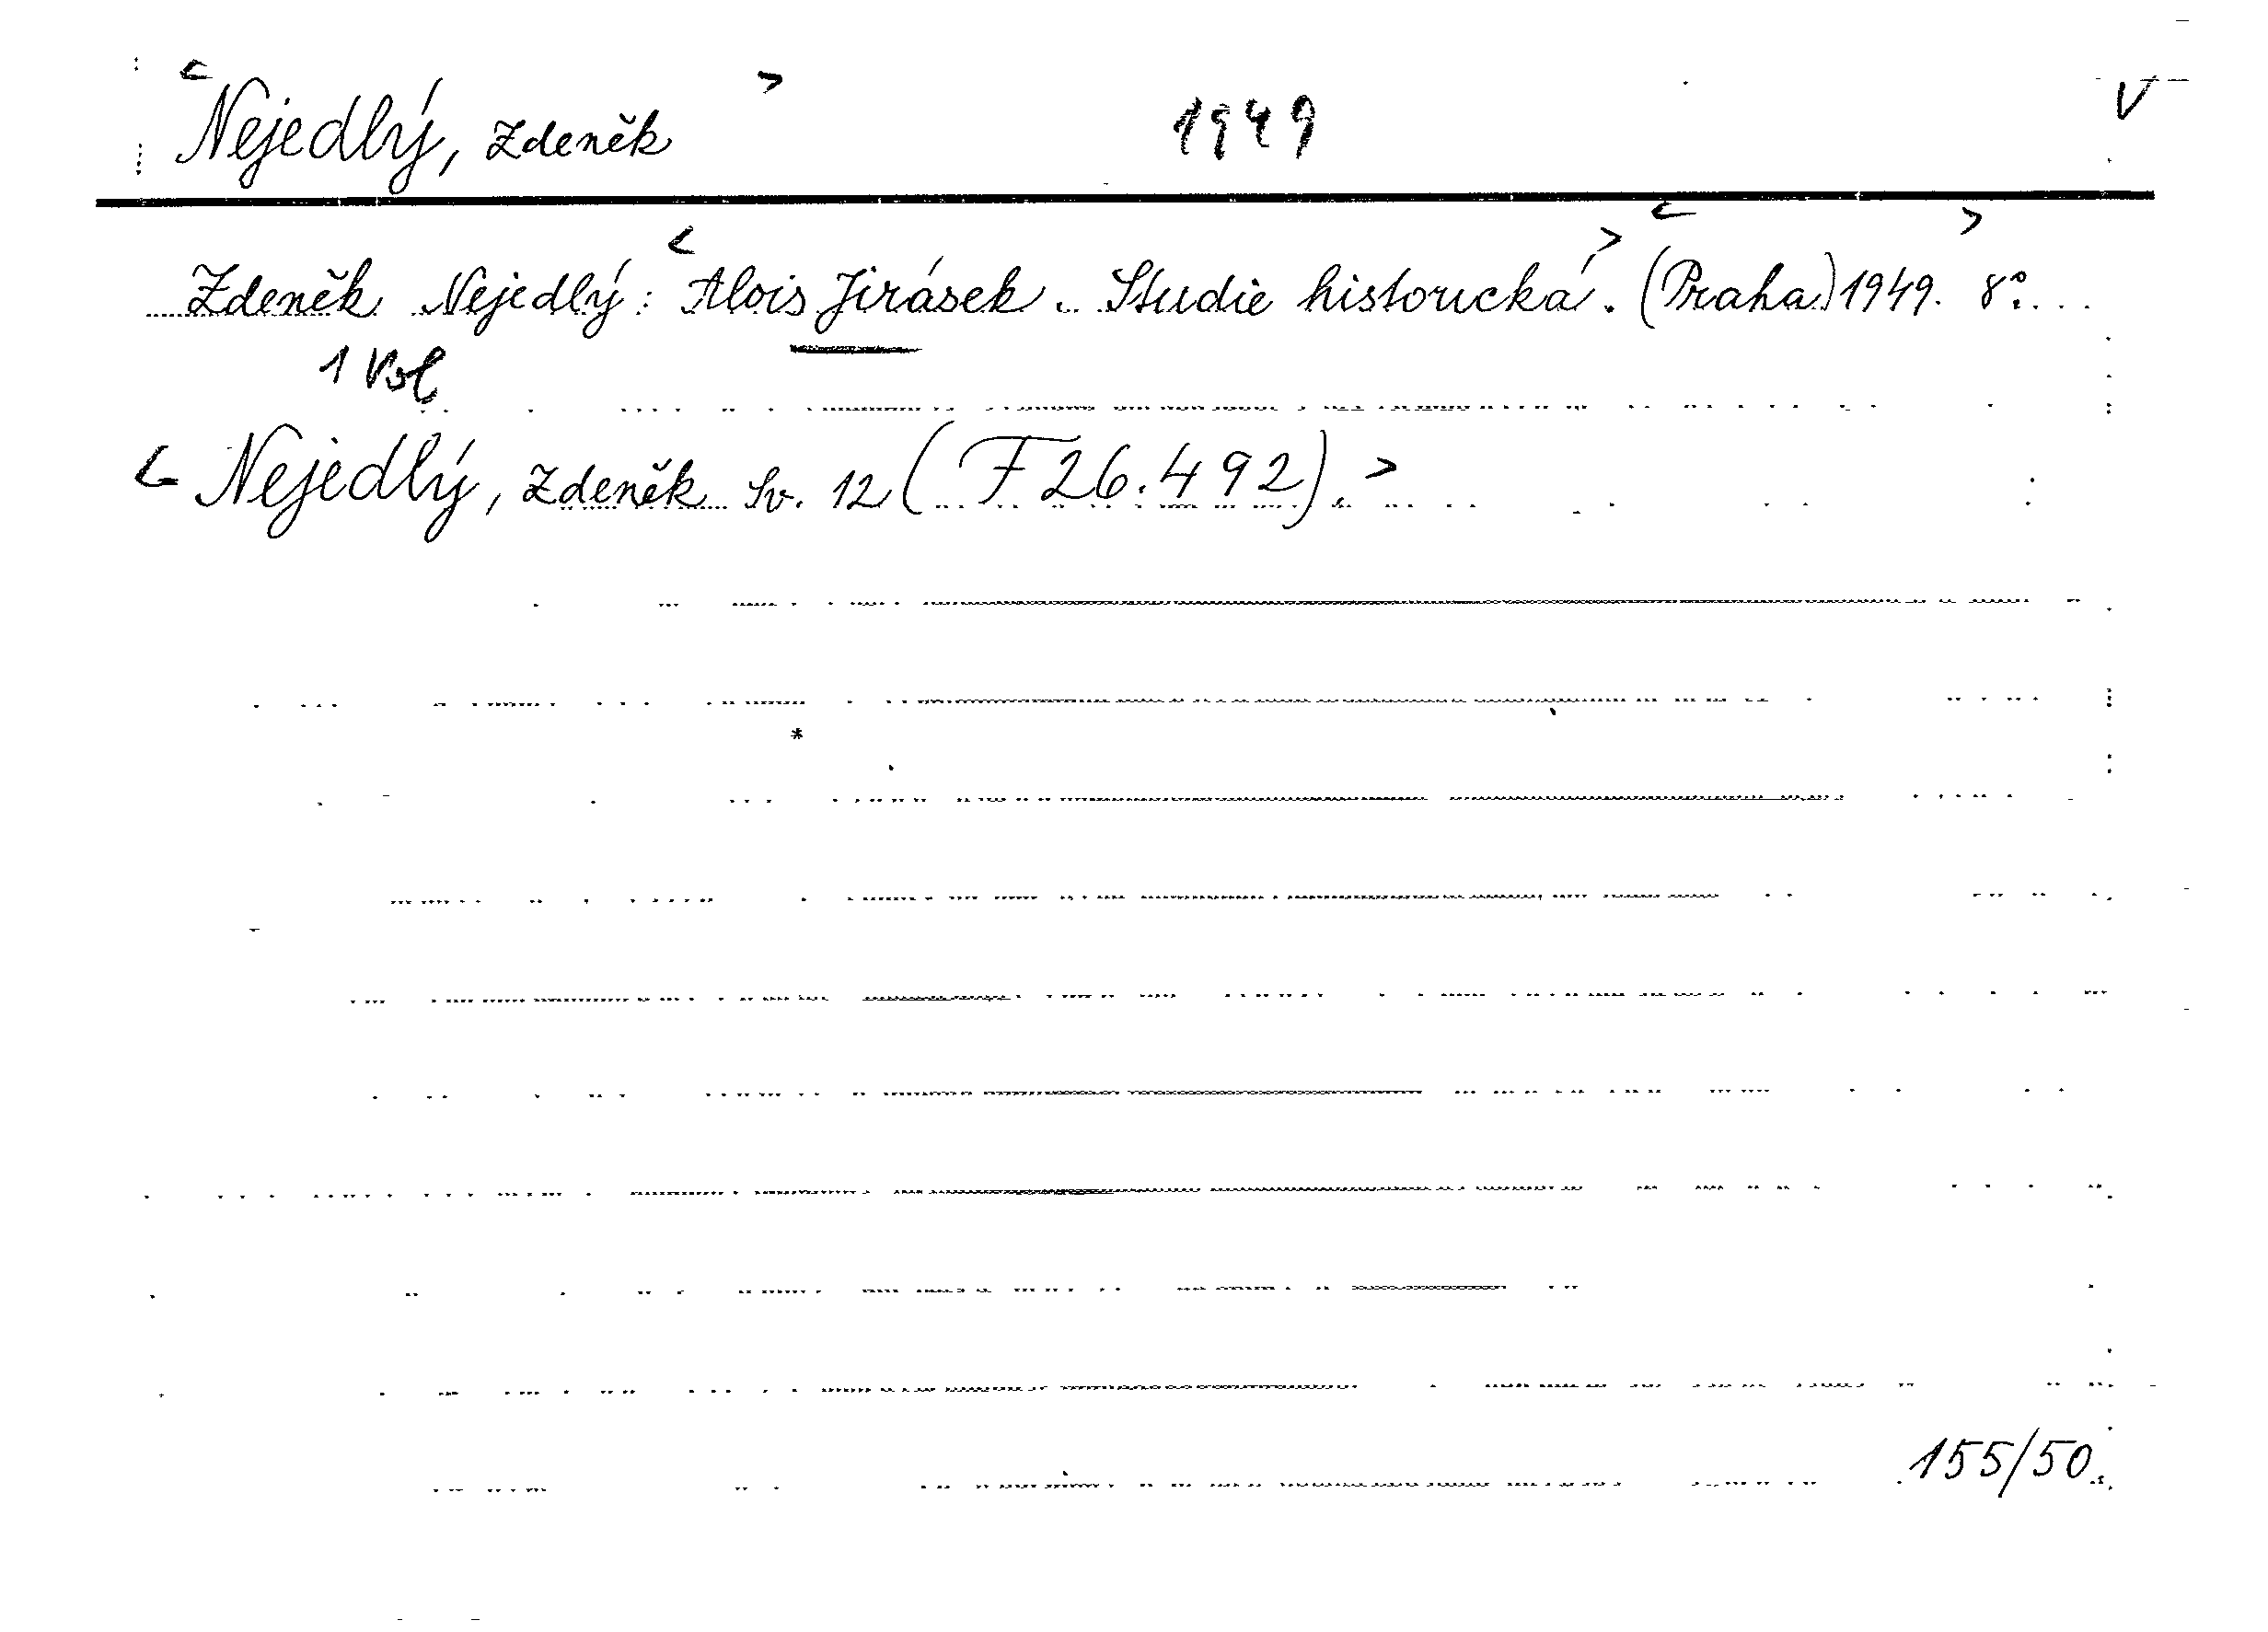 <Nejedlý, Zdeněk> 1949 V
Zdeněk Nejedlý: <Alois Jirásek. Studie historická>. <(Praha) 1949.> 8°.
1 Vol
<Nejedlý, Zdeněk Sv. 12 (F 26.492).>
*
155/50.